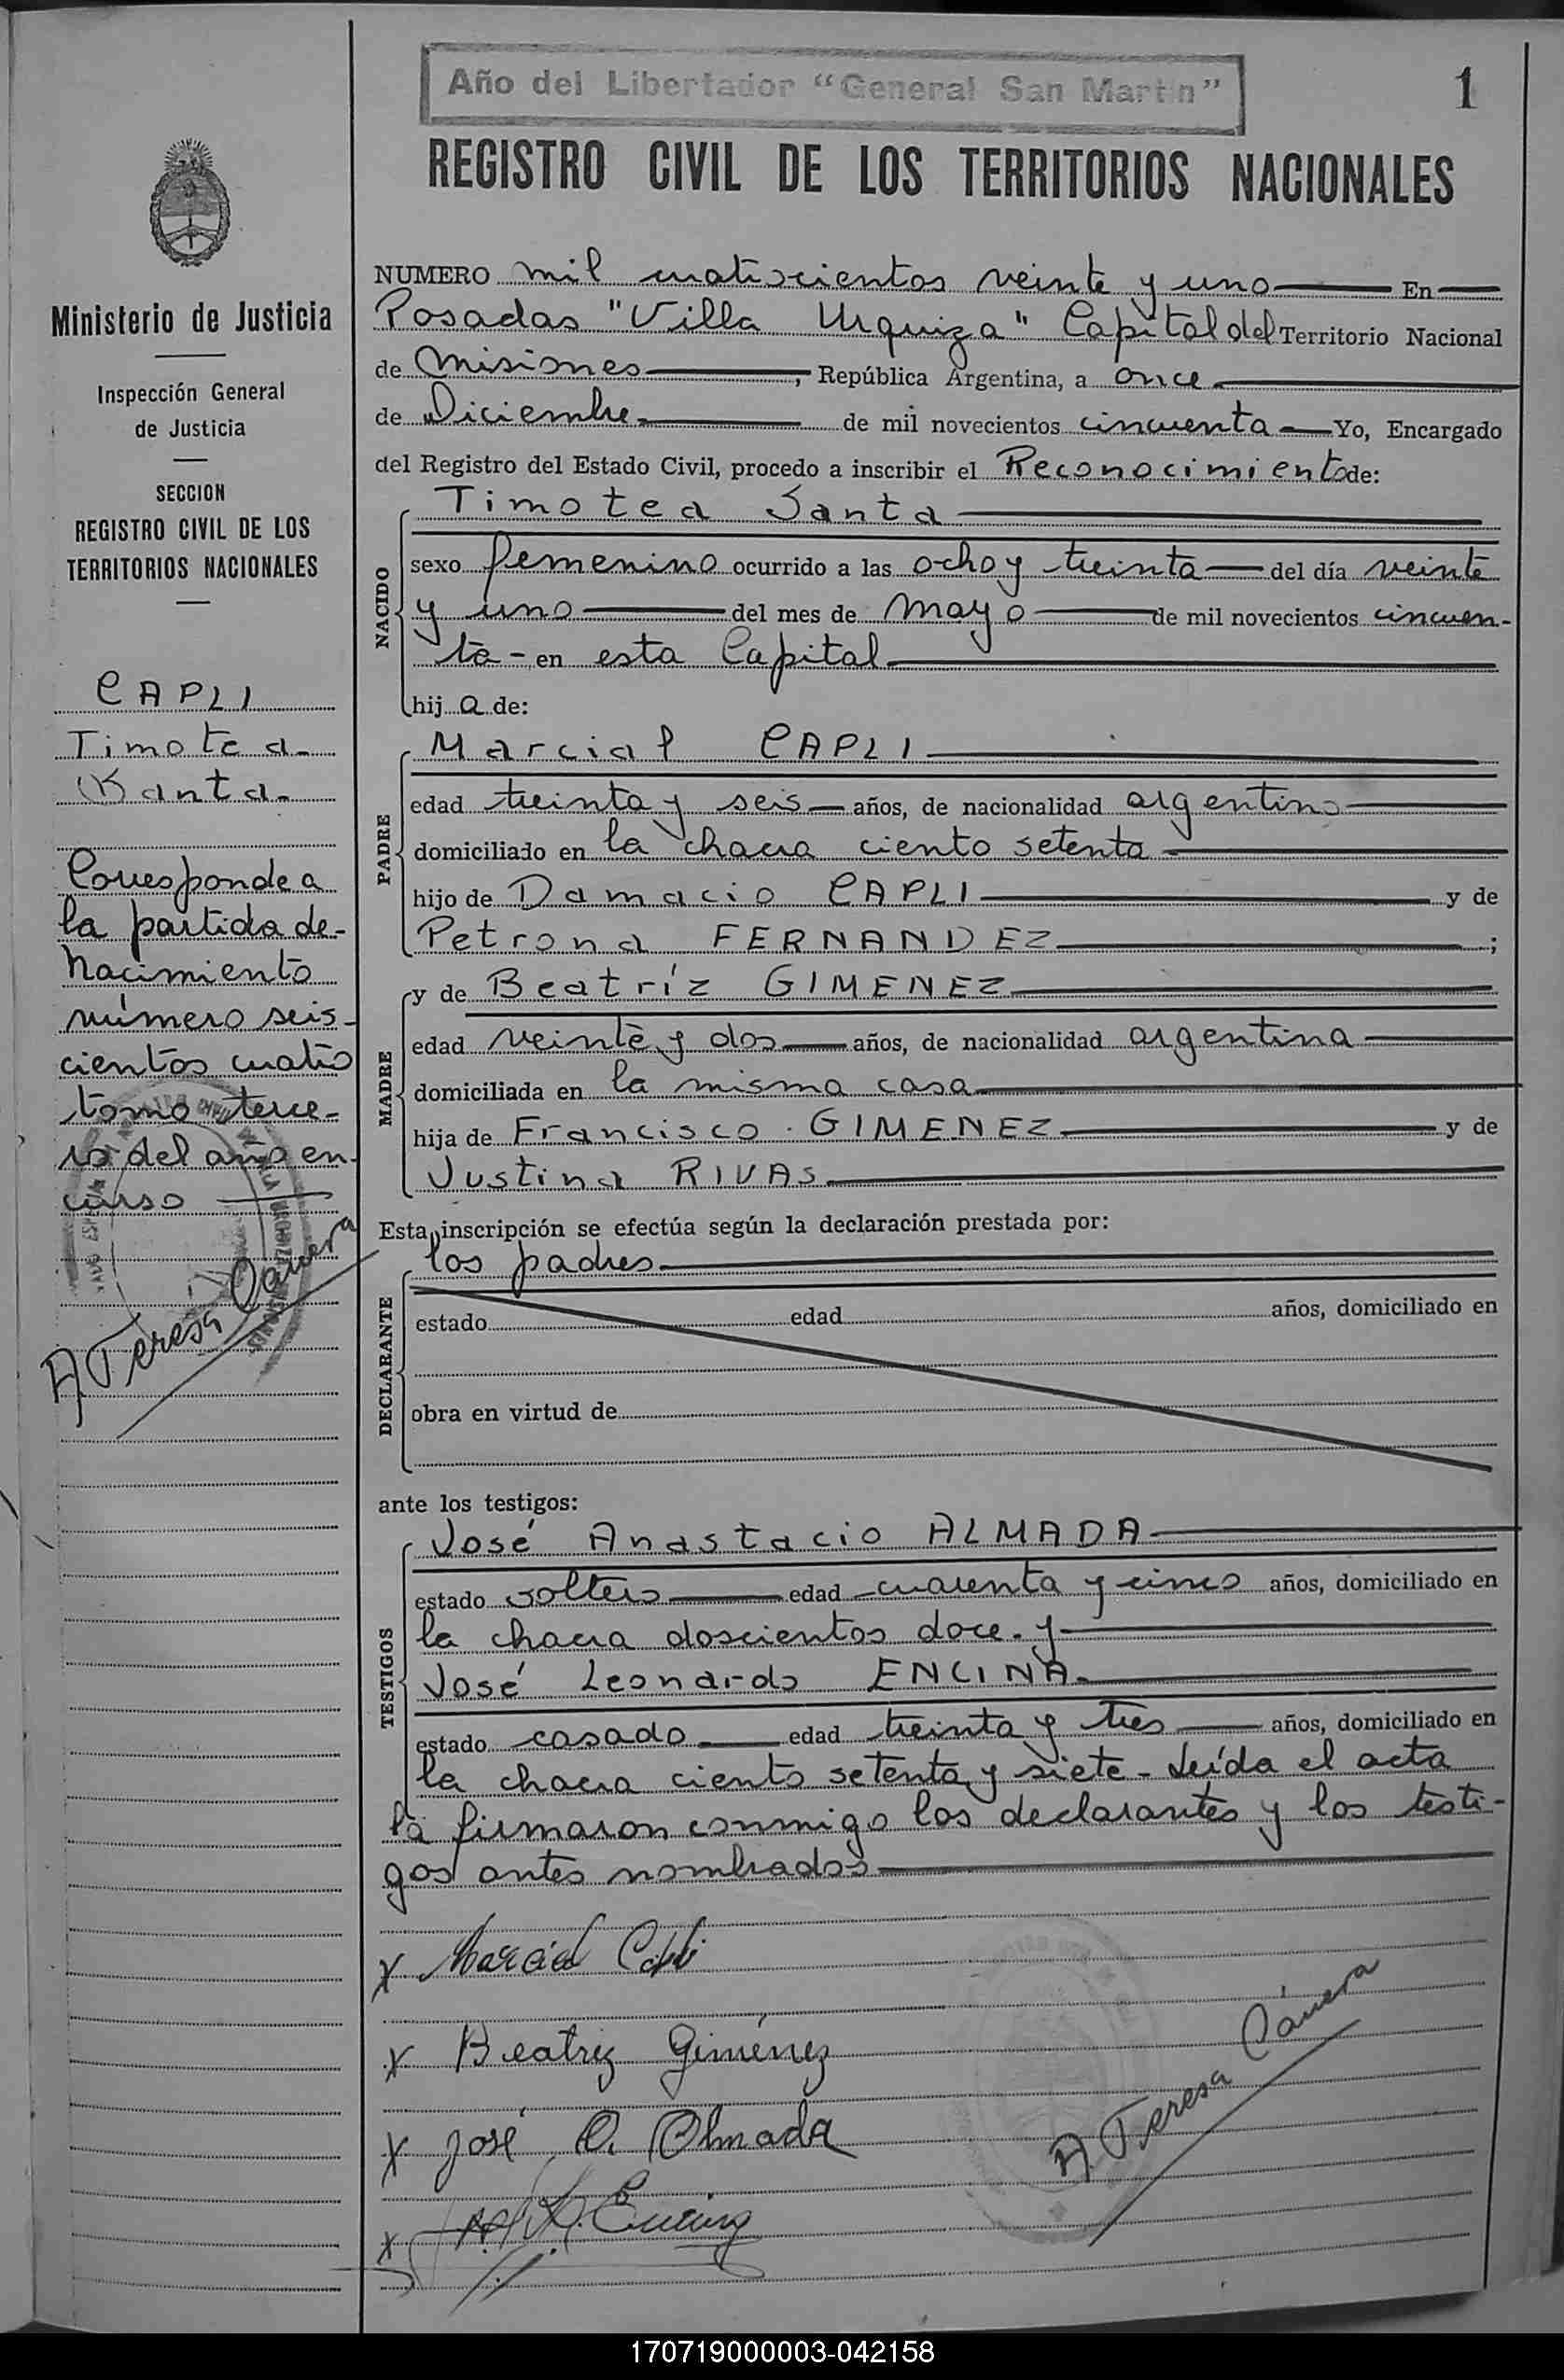 Año del Libertador "General San Martín"
1
REGISTRO CIVIL DE LOS TERRITORIOS NACIONALES
Ministerio de Justicia
Inspección General
de Justicia
SECCION
REGISTRO CIVIL DE LOS
TERRITORIOS NACIONALES
CAPLI
Timotea
Santa
Corresponde a
la partida de
Nacimiento
número seis-
cientos cuatro
tomo terce-
ro del año en
curso
A. Teresa Cámera
NUMERO mil cuatrocientos veinte y uno En
Posadas "Villa Urquiza" Capital del Territorio Nacional
de Misiones, República Argentina, a once
de Diciembre de mil novecientos cincuenta Yo, Encargado
del Registro del Estado Civil, procedo a inscribir el Reconocimiento de:
NACIDO
Timotea Santa
sexo femenino ocurrido a las ocho y treinta del día veinte
y uno del mes de mayo de mil novecientos cincuen-
ta - en esta Capital
hij a de:
PADRE
Marcial CAPLI
edad treinta y seis años, de nacionalidad argentino
domiciliado en la chacra ciento setenta
hijo de Damacio CAPLI y de
Petrona FERNANDEZ ;
MADRE
y de Beatríz GIMENEZ
edad veinte y dos años, de nacionalidad argentina
domiciliada en la misma casa
hija de Francisco GIMENEZ y de
Justina RIVAS
Esta inscripción se efectúa según la declaración prestada por:
los padres
DECLARANTE
estado edad años, domiciliado en
obra en virtud de
ante los testigos:
TESTIGOS
José Anastacio ALMADA
estado soltero edad cuarenta y cinco años, domiciliado en
la chacra doscientos doce. y
José Leonardo ENCINA
estado casado edad treinta y tres años, domiciliado en
la chacra ciento setenta y siete - Leída el acta
la firmaron conmigo los declarantes y los testi-
gos antes nombrados
x Marcial Capli
x Beatriz Giménez
x José A. Almada
x Encina
A. Teresa Cámera
170719000003-042158